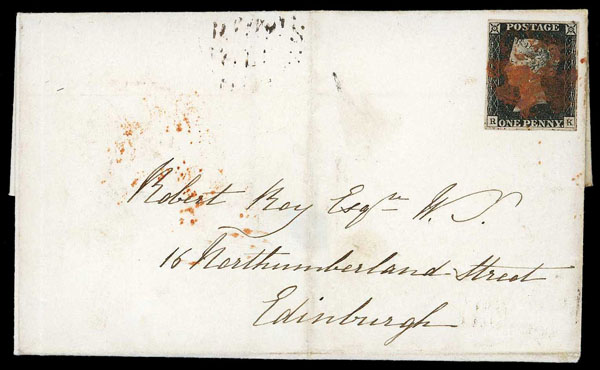 POSTAGE
R ONE PENNY K
Robert Roy Esqre W.S.
16 Northumberland Street
Edinburgh